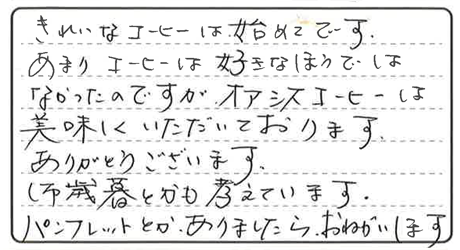 きれいなコーヒーは始めてです.
あまりコーヒーは好きなほうでは
なかったのですが、オアシスコーヒーは
美味しくいただいております.
ありがとうございます.
お歳暮とかも考えています.
パンフレットとか、ありましたら、おねがいします